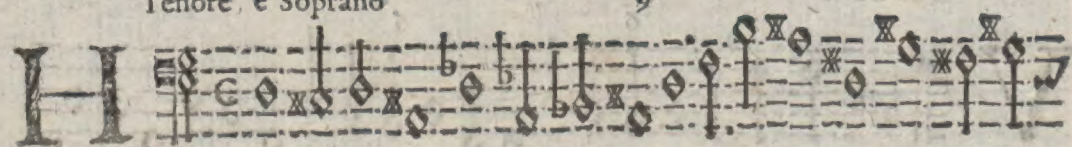 Tenore e Soprano 9
H